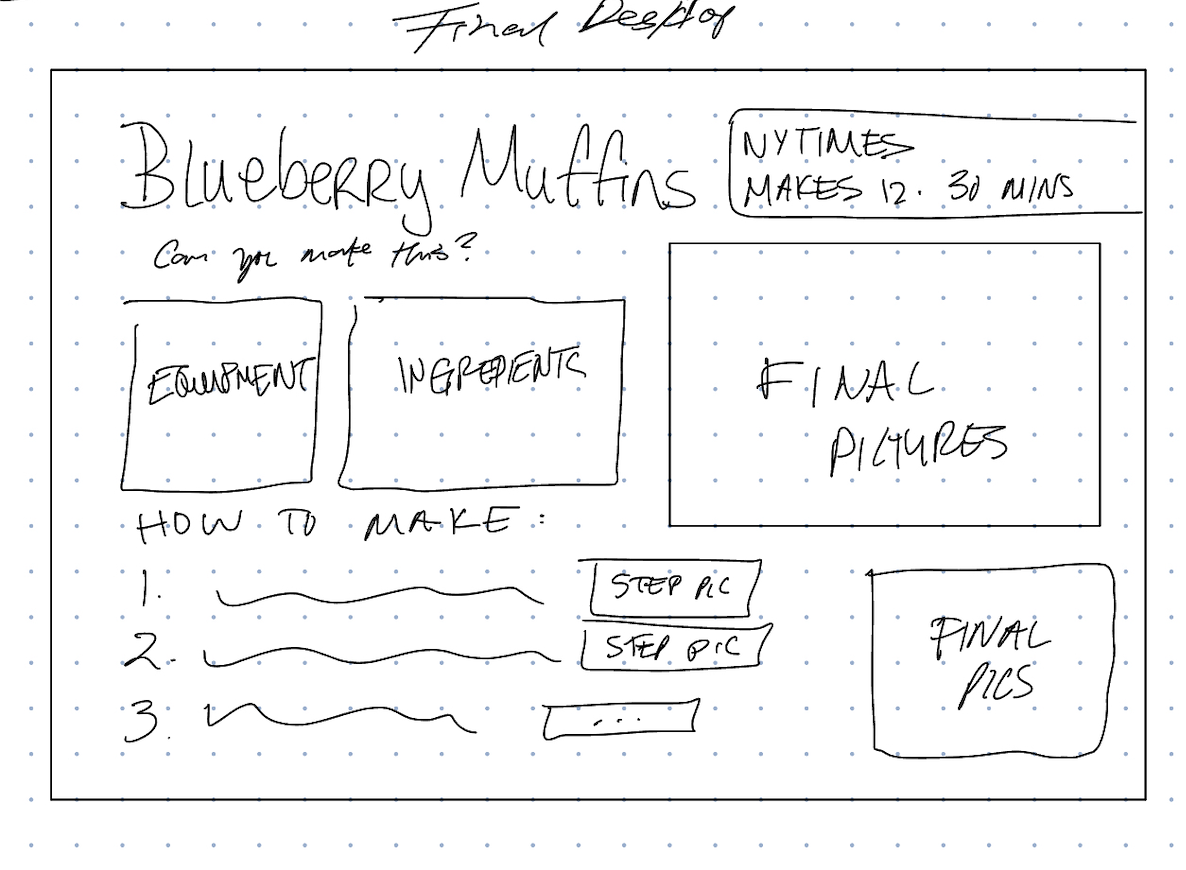 Final Desktop
Blueberry Muffins
NYTIMES
MAKES 12. 30 MINS
Can you make this?
EQUIPMENT
INGREDIENTS
FINAL
PICTURES
HOW TO MAKE:
1.
STEP PIC
2.
STEP PIC
3.
...
FINAL
PICS